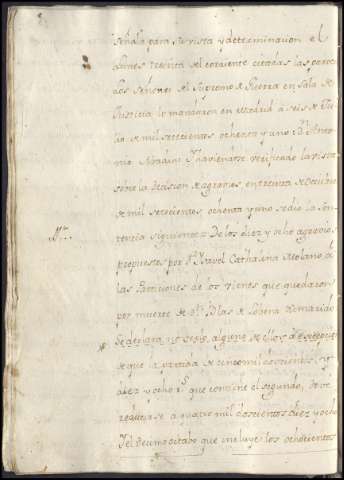 señala para su vista y determinacion el
Lunes treinta del corriente citadas las partes
los Señores del Supremo de Guerra en Sala de
Justicia lo mandaron en Madrid a seis de Ju
lio de mil setecientos ochenta y uno D.n Anto
nio Y haviendose verificado la vista
sobre la decision de agravios en treinta de Octubre
de mil setecientos ochenta y uno se dio la Sen
tencia siguiente De los diez y ocho agravios
propuestos por D.ª Ysavel Cathalina Molano a
las Particiones de los vienes que quedaron
por muerte de D.n Blas de Lobera su marido
Se declara no serlo alguno de ellos a excepcion
de que la partida de cinco mil doscientos
diez y ocho r.s que contiene el segundo, deve
reducirse a quatro mil doscientos diez y ocho
Y el decimo octabo que incluye los ochocientos